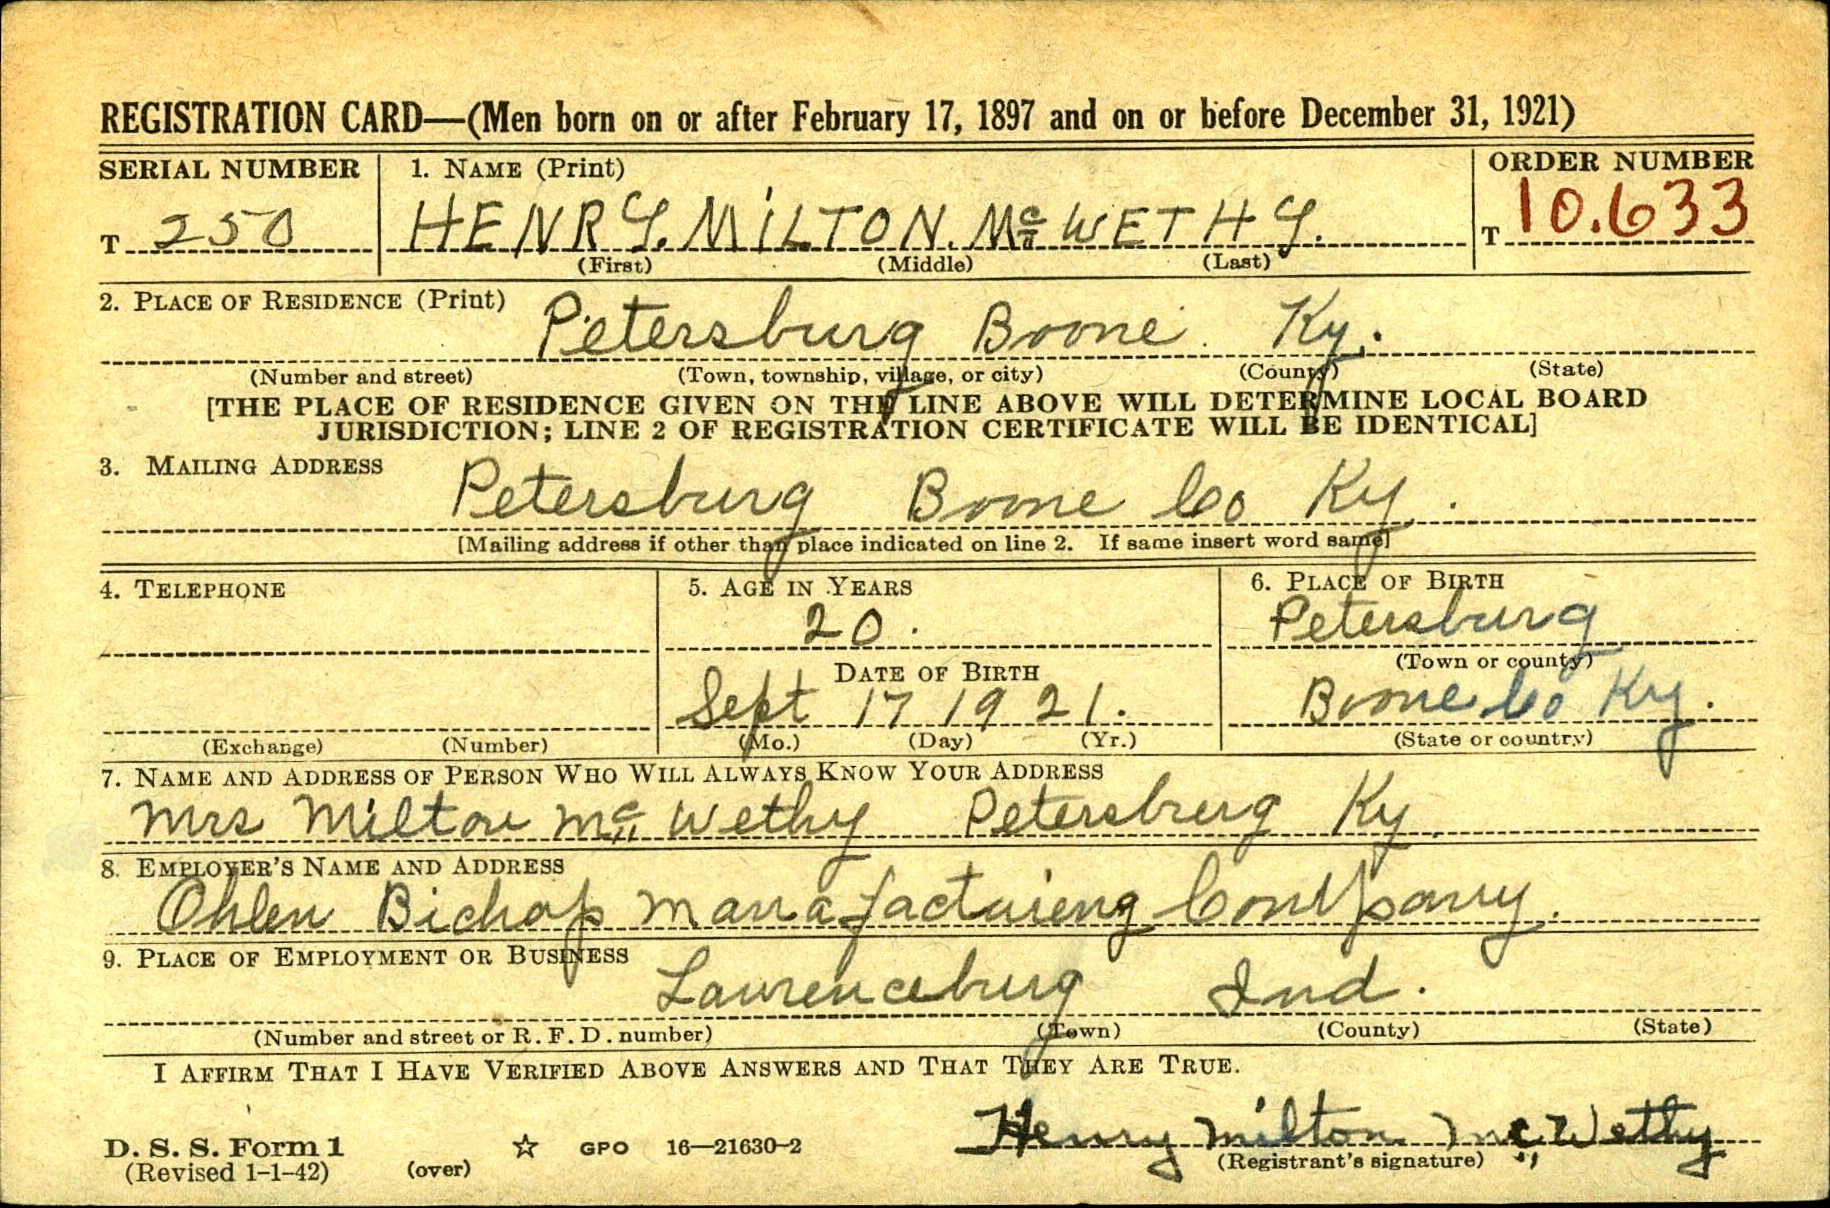 REGISTRATION CARD—(Men born on or after February 17, 1897 and on or before December 31, 1921)
SERIAL NUMBER 1. NAME (Print) ORDER NUMBER
T 250 HENRY. MILTON. McWETHY. T 10.633
(First) (Middle) (Last)
2. PLACE OF RESIDENCE (Print)
Petersburg Boone. Ky.
(Number and street) (Town, township, village, or city) (County) (State)
[THE PLACE OF RESIDENCE GIVEN ON THE LINE ABOVE WILL DETERMINE LOCAL BOARD
JURISDICTION; LINE 2 OF REGISTRATION CERTIFICATE WILL BE IDENTICAL]
3. MAILING ADDRESS
Petersburg Boone Co Ky.
[Mailing address if other than place indicated on line 2. If same insert word same]
4. TELEPHONE 5. AGE IN YEARS 6. PLACE OF BIRTH
20. Petersburg
DATE OF BIRTH (Town or county)
Sept 17 1921. Boone Co Ky.
(Exchange) (Number) (Mo.) (Day) (Yr.) (State or country)
7. NAME AND ADDRESS OF PERSON WHO WILL ALWAYS KNOW YOUR ADDRESS
Mrs Milton McWethy Petersburg Ky.
8. EMPLOYER'S NAME AND ADDRESS
Ohlen Bichop Manafactuieng Company.
9. PLACE OF EMPLOYMENT OR BUSINESS
Lawrenceburg Ind.
(Number and street or R. F. D. number) (Town) (County) (State)
I AFFIRM THAT I HAVE VERIFIED ABOVE ANSWERS AND THAT THEY ARE TRUE.
Henry Milton McWethy
D. S. S. Form 1 GPO 16—21630-2
(Revised 1-1-42) (over) (Registrant's signature)